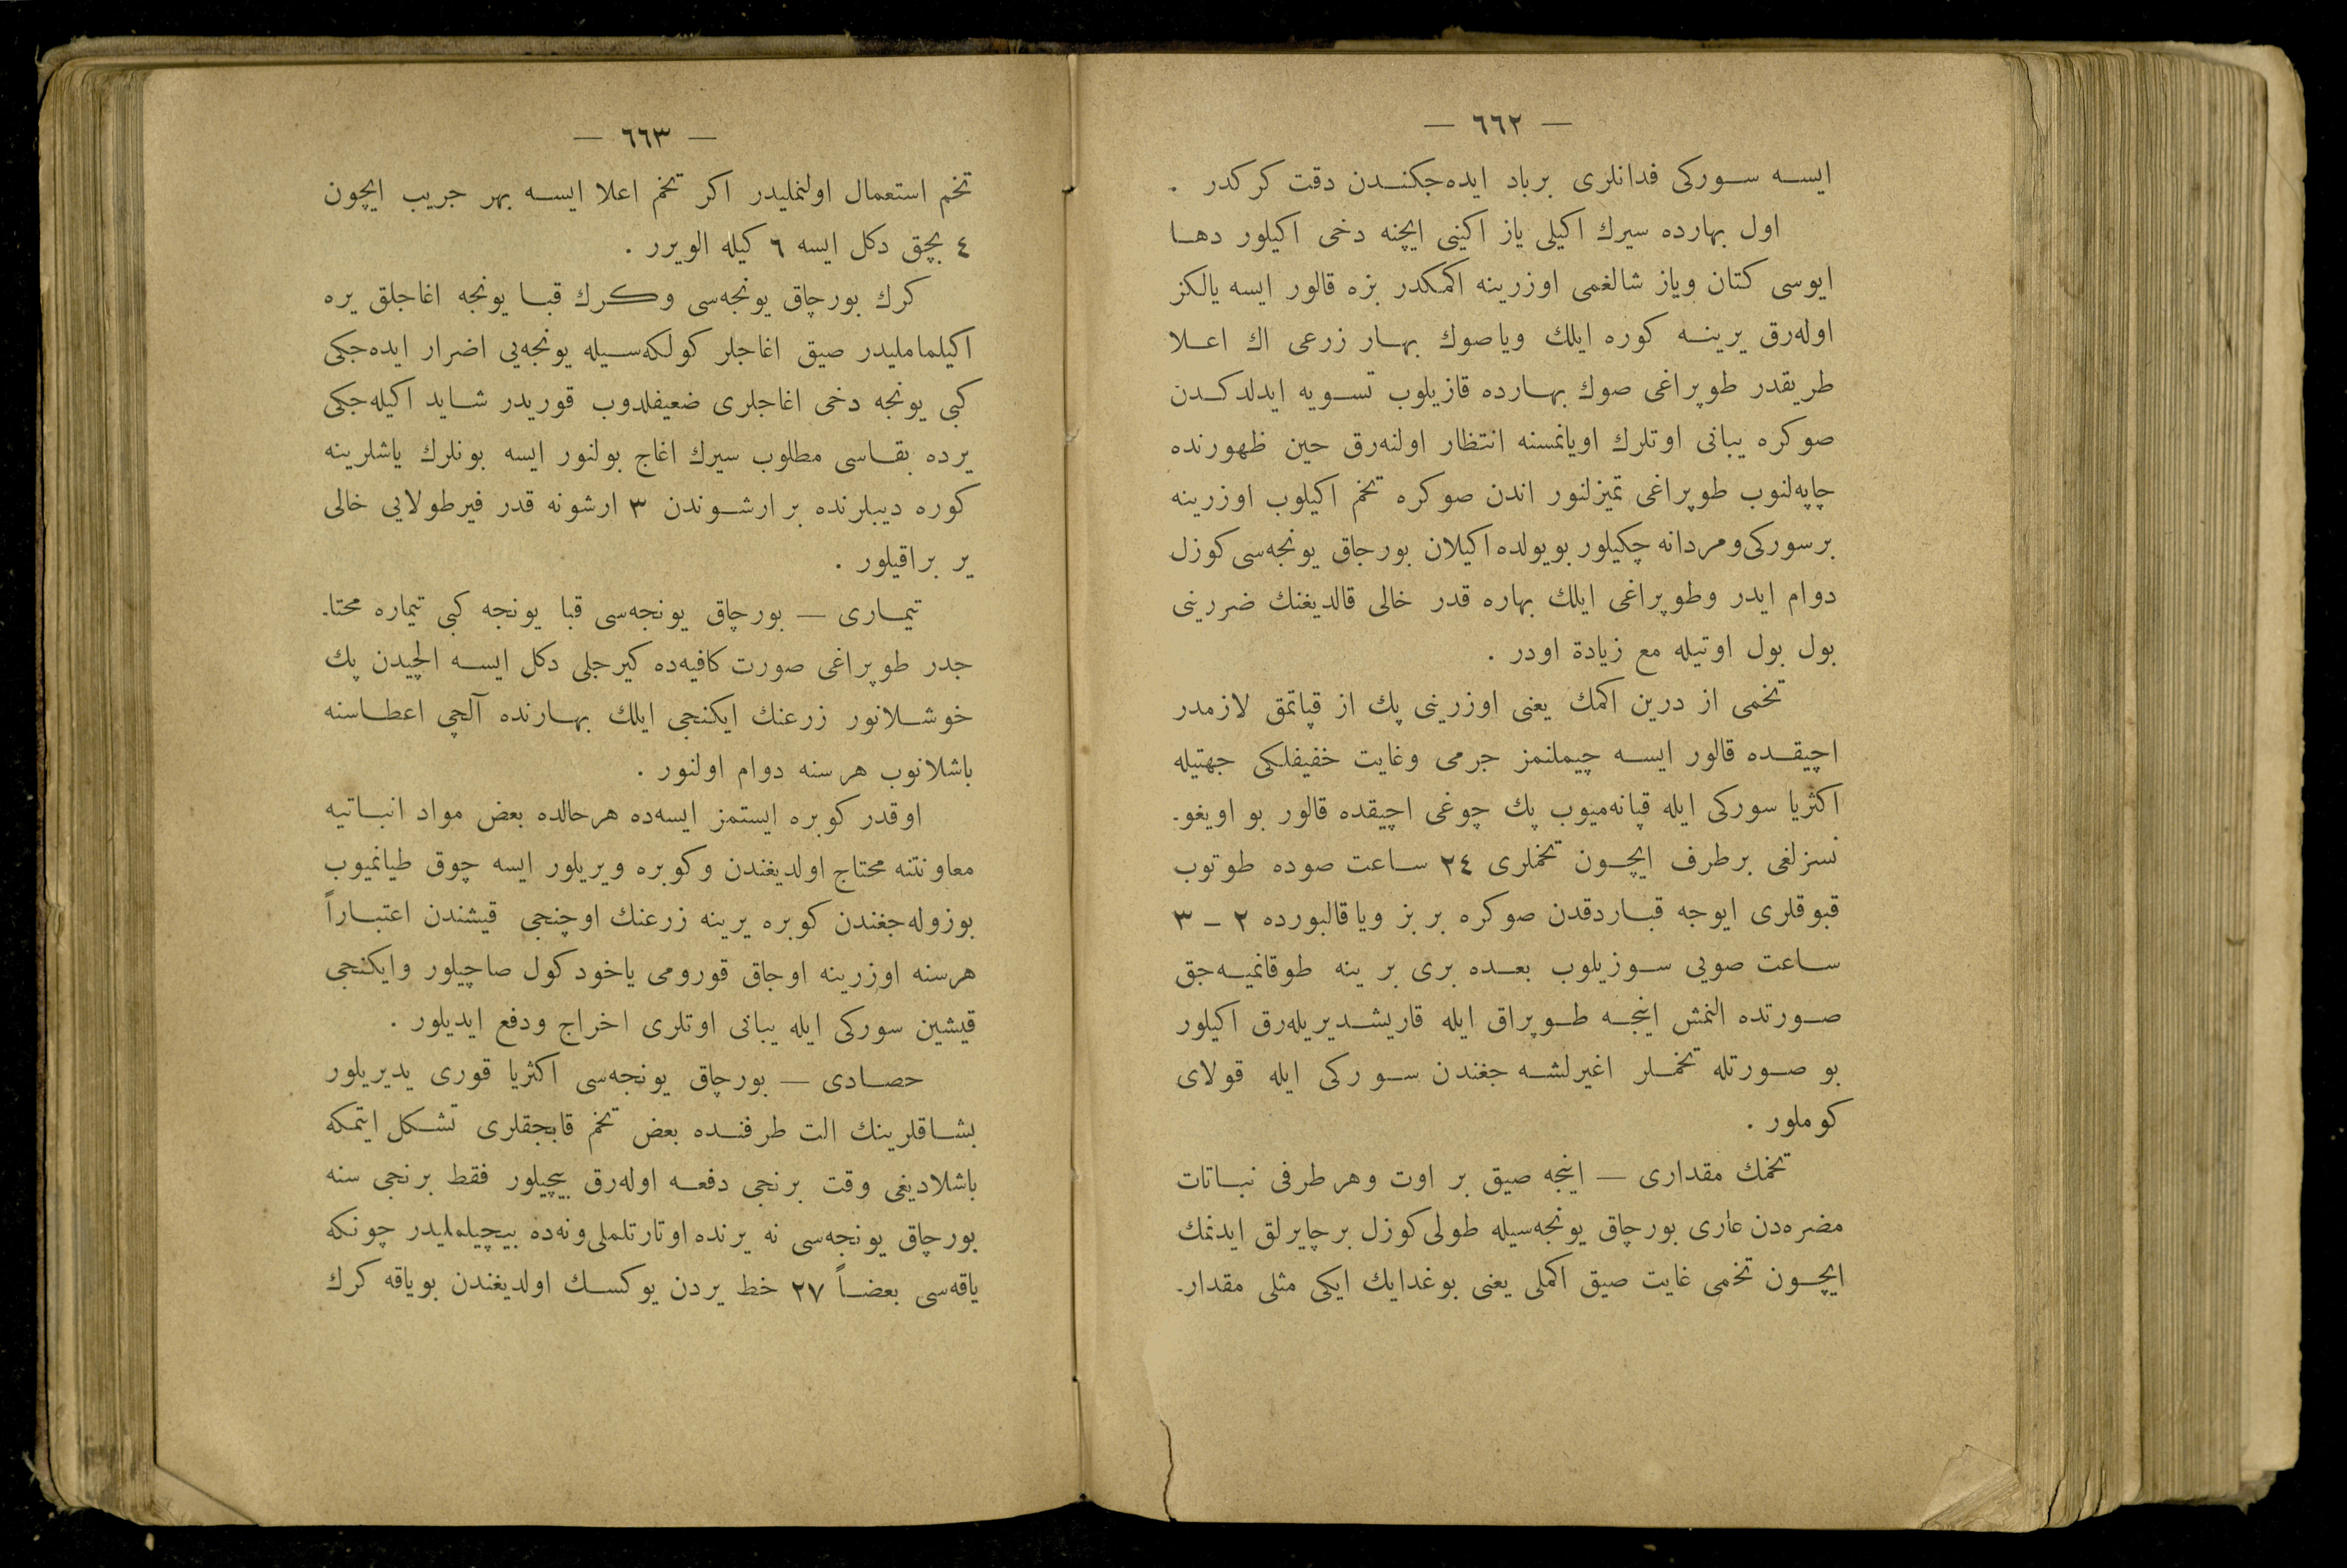 — ٦٦٢ —
ایسه سورکی فدانلری برباد ایده‌جکندن دقت کرکدر .
اول بهارده سیرك اکیلی یاز اکینی ایچنه دخی اکیلور دها
ایوسی کتان ویاز شالغمی اوزرینه اکمکدر بزه قالور ایسه یالکز
اوله‌رق یرینه کوره ایلك ویاصوك بهار زرعی اك اعلا
طریقدر طوپراغی صوك بهارده قازیلوب تسویه ایدلدکدن
صوکره یبانی اوتلرك اویانمسنه انتظار اولنه‌رق حین ظهورنده
چاپه‌لنوب طوپراغی تمیزلنور اندن صوکره تخم اکیلوب اوزرینه
برسورکی‌ومردانه چکیلور بویولده اکیلان بورجاق یونجه‌سی کوزل
دوام ایدر وطوپراغی ایلك بهاره قدر خالی قالدیغنك ضررینی
بول بول اوتیله مع زیادة اودر .
تخمی از درین اکمك یعنی اوزرینی پك از قپاتمق لازمدر
اچیقده قالور ایسه چیملنمز جرمی وغایت خفیفلکی جهتیله
اکثریا سورکی ایله قپانه‌میوب پك چوغی اچیقده قالور بو اویغو-
نسزلغی برطرف ایچون تخملری ٢٤ ساعت صوده طوتوب
قبوقلری ایوجه قباردقدن صوکره بر بز ویا قالبورده ٢ – ٣
ساعت صویی سوزیلوب بعده بری بر ینه طوقانمیه‌جق
صورتده النمش اینجه طوپراق ایله قاریشدیریله‌رق اکیلور
بو صورتله تخملر اغیرلشه جغندن سورکی ایله قولای
کوملور .
تخمك مقداری — اینجه صیق بر اوت وهر طرفی نباتات
مضره‌دن عاری بورچاق یونجه‌سیله طولی کوزل برچایرلق ایدنمك
ایچون تخمی غایت صیق اکملی یعنی بوغدایك ایکی مثلی مقدار-
— ٦٦٣ —
تخم استعمال اولنملیدر اکر تخم اعلا ایسه بهر جریب ایچون
٤ بچق دکل ایسه ٦ کیله الویرر .
کرك بورچاق یونجه‌سی وکرك قبا یونجه اغاجلق یره
اکیلماملیدر صیق اغاجلر کولکه‌سیله یونجه‌یی اضرار ایده‌جکی
کبی یونجه دخی اغاجلری ضعیفلدوب قوریدر شاید اکیله‌جکی
یرده بقاسی مطلوب سیرك اغاج بولنور ایسه بونلرك یاشلرینه
کوره دیبلرنده بر ارشوندن ٣ ارشونه قدر فیرطولایی خالی
یر براقیلور .
تیماری — بورچاق یونجه‌سی قبا یونجه کبی تیماره محتا-
جدر طوپراغی صورت کافیه‌ده کیرجلی دکل ایسه الچیدن پك
خوشلانور زرعنك ایکنجی ایلك بهارنده آلچی اعطاسنه
باشلانوب هرسنه دوام اولنور .
اوقدر کوبره ایستمز ایسه‌ده هرحالده بعض مواد انباتیه
معاونتنه محتاج اولدیغندن وکوبره ویریلور ایسه چوق طیانمیوب
بوزوله‌جغندن کوبره یرینه زرعنك اوچنجی قیشندن اعتباراً
هرسنه اوزرینه اوجاق قورومی یاخود کول صاچیلور وایکنجی
قیشین سورکی ایله یبانی اوتلری اخراج ودفع ایدیلور .
حصادی — بورچاق یونجه‌سی اکثریا قوری یدیریلور
بشاقلرینك الت طرفنده بعض تخم قابجقلری تشکل ایتمکه
باشلادیغی وقت برنجی دفعه اوله‌رق بیچیلور فقط برنجی سنه
بورچاق یونجه‌سی نه یرنده اوتارتلملی‌ونه‌ده بیچیلملیدر چونکه
یاقه‌سی بعضاً ٢٧ خط یردن یوکسك اولدیغندن بویاقه کرك